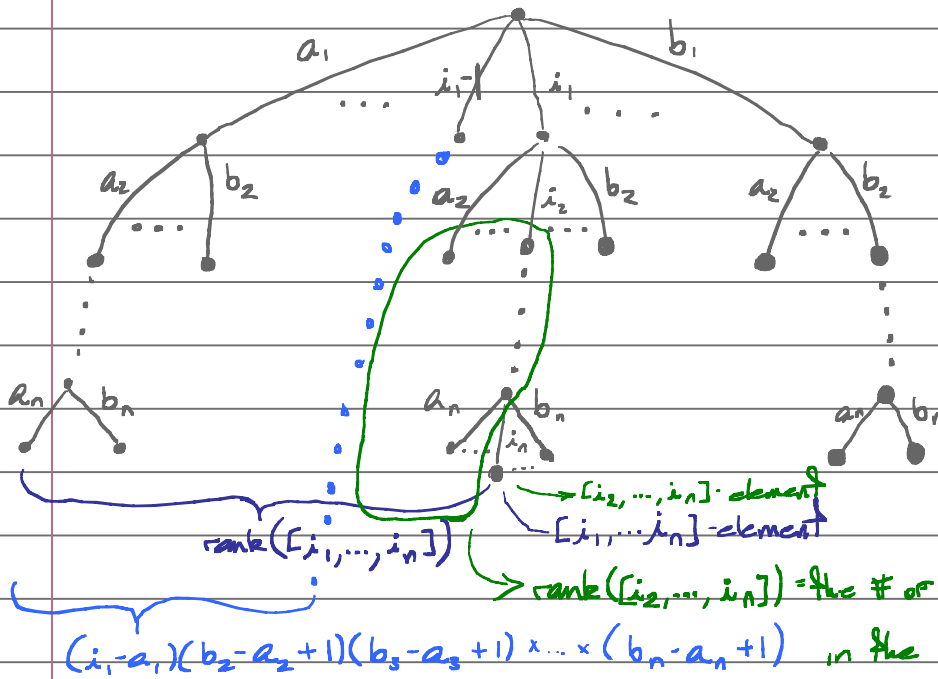 a₁ b₁
i₁-1 i₁
. . . . . . .
a₂ b₂ a₂ i₂ b₂ a₂ b₂
. . . . . . . . . . . .
aₙ bₙ aₙ bₙ aₙ bₙ
iₙ
[i₂,...,iₙ]-element
[i₁,...iₙ]-element
rank([i₁,...,iₙ])
rank([i₂,...,iₙ]) = the # of
(i₁-a₁)(b₂-a₂+1)(b₃-a₃+1)×...×(bₙ-aₙ+1) in the